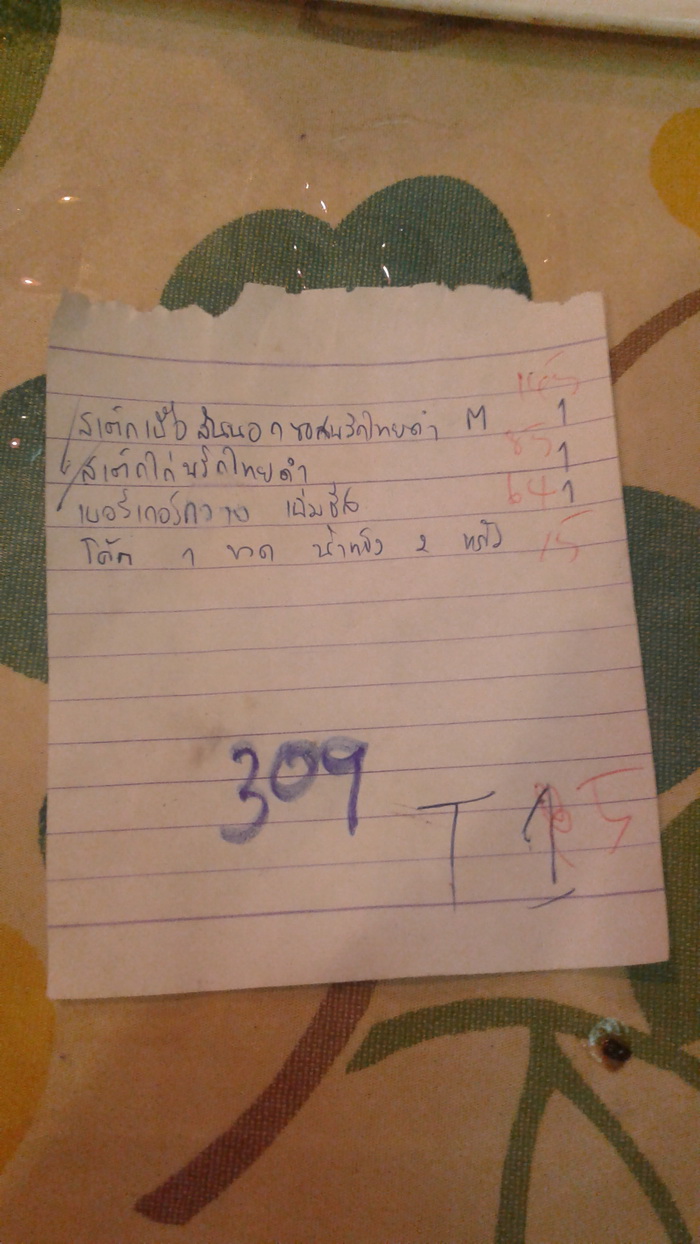 145
สเต็กเนื้อสันนอกซอสพริกไทยดำ M 1
85
สเต็กไก่พริกไทยดำ 1
64
เบอร์เกอร์กวาง เพิ่มชีส 1
โค้ก 1 ขวด น้ำแข็ง 2 แก้ว 15
309
T 1